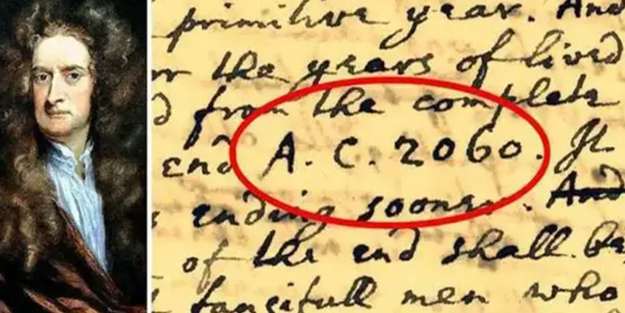 primitive year. And
r the years of lived
d from the complete
end A. C. 2060. It
ending sooner. And
of the end shall be
fancifull men who